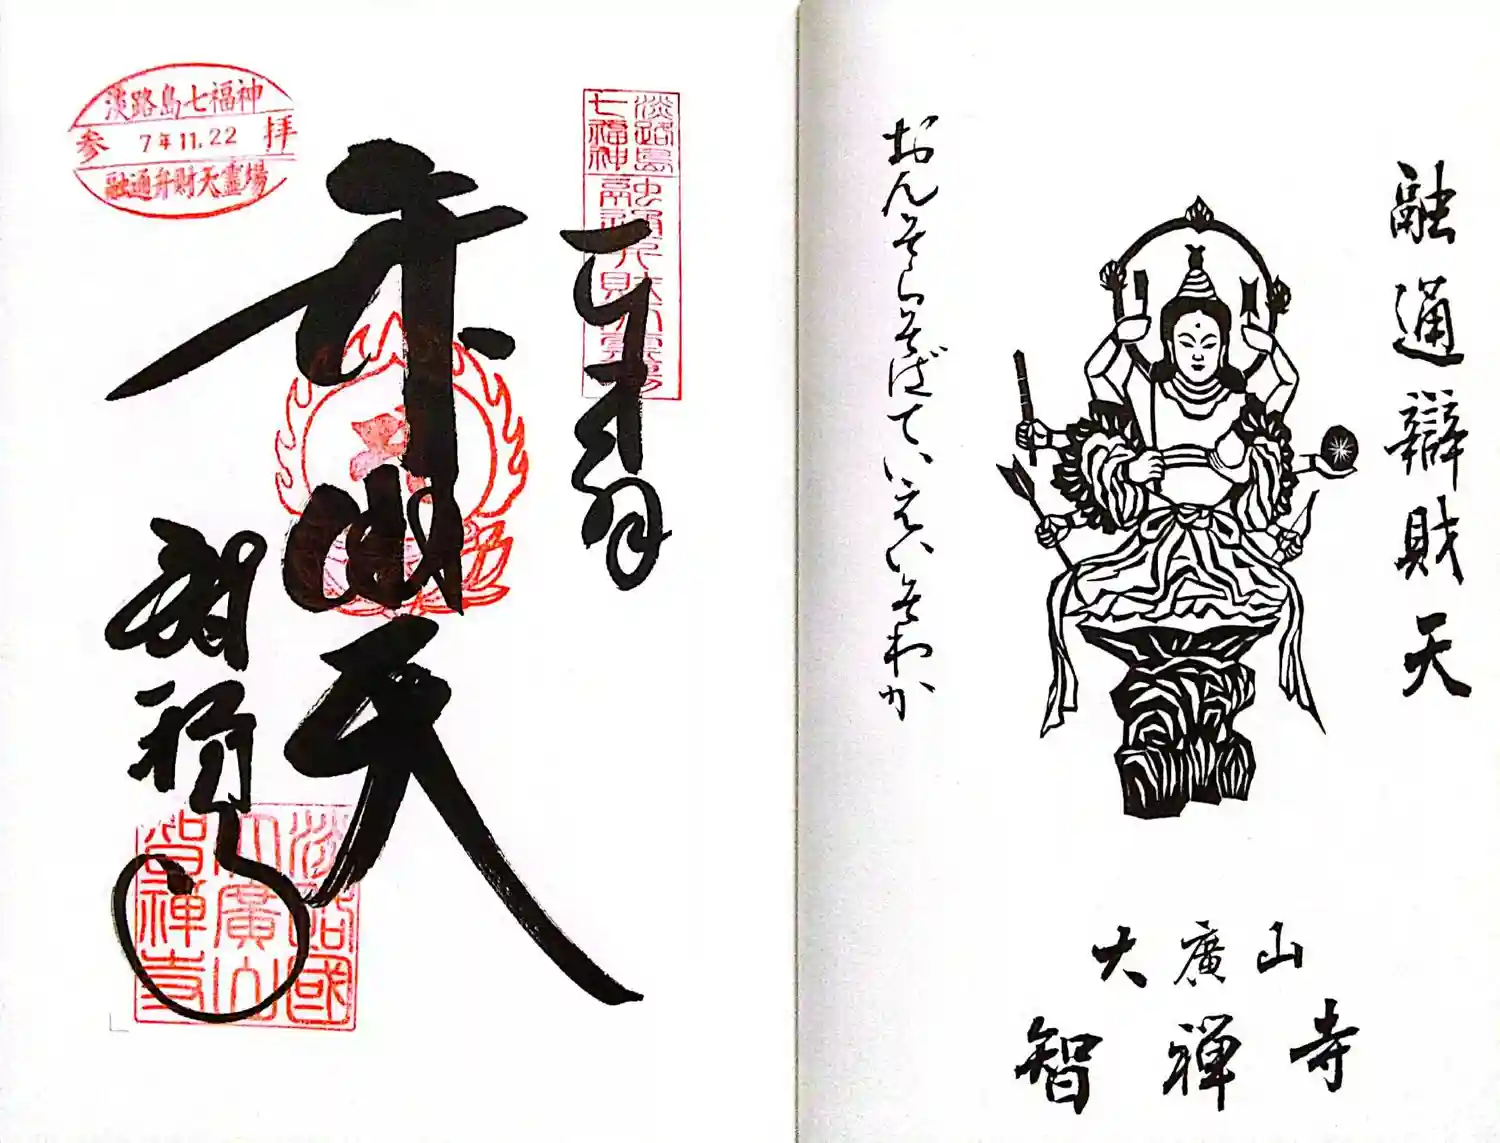 融通辯財天
おんそらそばていえいそわか
大廣山
智禅寺
淡路島七福神
参 7年11.22 拝
融通弁財天霊場
淡路島
七福神
融通弁財天霊場
弁財天
智禅寺
淡路國
大廣山
智禅寺